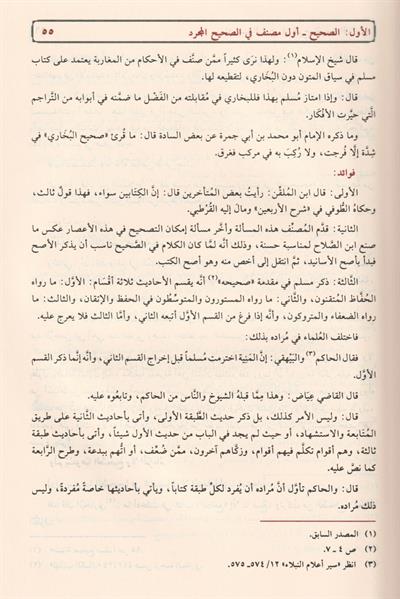 الأول: الصحيح - أول مصنف في الصحيح المجرد
٥٥
قال شيخ الإسلام(١): ولهذا نرَى كثيراً ممَّن صنَّف في الأحكام من المغاربة يعتمد على كتاب
مسلم في سياق المتون دون البُخاري، لتقطيعه لها.
قال: وإذا امتاز مُسلم بهذا فللبخاري في مُقابلته من الفَضْل ما ضمَّنه في أبوابه من التَّراجم
الَّتي حيَّرت الأفْكار.
وما ذكره الإمام أبو محمد بن أبي جمرة عن بعض السادة قال: ما قُرئ «صحيح البُخَاري» في
شِدَّة إلَّا فُرجت، ولا رُكِبَ به في مركب فغرق.
فوائد:
الأولى: قال ابن المُلقِّن: رأيتُ بعض المُتأخرين قال: إنَّ الكتابين سواء، فهذا قولٌ ثالث،
وحكاهُ الطُّوفي في «شرح الأربعين» ومالَ إليه القُرْطبي.
الثانية: قدَّم المُصنِّف هذه المسألة وأخَّر مسألة إمكان التصحيح في هذه الأعصار عكس ما
صنع ابن الصَّلاح لمناسبة حسنة، وذلك أنَّه لمَّا كان الكلام في الصَّحيح ناسب أن يذكر الأصح
فبدأ بأصح الأسانيد، ثمَّ انتقل إلى أخص منه وهو أصح الكتب.
الثَّالثة: ذكر مسلم في مقدمة «صحيحه»(٢) أنَّه يقسم الأحاديث ثلاثة أقْسَام: الأوَّل: ما رواه
الحُفَّاظ المُتقنون، والثَّاني: ما رواه المستورون والمتوسِّطُون في الحفظ والإتقان، والثالث: ما
رواه الضعفاء والمتروكون، وأنَّه إذا فرغ من القسم الأوَّل أتبعه الثاني، وأمَّا الثالث فلا يعرج عليه.
فاختلف العُلماء في مُراده بذلك:
فقال الحاكم(٣) والبَيْهقي: إنَّ المَنِية اخترمت مُسلماً قبل إخراج القسم الثاني، وأنَّه إنَّما ذكر القسم
الأوَّل.
قال القاضي عِيَاض: وهذا مِمَّا قبلهُ الشيوخ والنَّاس من الحاكم، وتابعُوه عليه.
قال: وليس الأمر كذلك، بل ذكر حديث الطَّبقة الأولى، وأتى بأحاديث الثَّانية على طريق
المُتَابعة والاستشهاد، أو حيث لم يجد في الباب من حديث الأول شيئاً، وأتى بأحاديث طبقة
ثالثة، وهم أقوام تكلَّم فيهم أقوام، وزكَّاهم آخرون، ممَّن ضُعِّف، أو اتُّهم ببدعة، وطرح الرابعة
كما نصَّ عليه.
قال: والحاكم تأوَّل أنَّ مُراده أن يُفرد لكلِّ طبقة كتاباً، ويأتي بأحاديثها خاصةً مُفردةً، وليس
ذلك مُراده.
(١) المصدر السابق.
(٢) ص ٤ - ٧.
(٣) انظر «سير أعلام النبلاء» ١٢/ ٥٧٤ـ ٥٧٥.